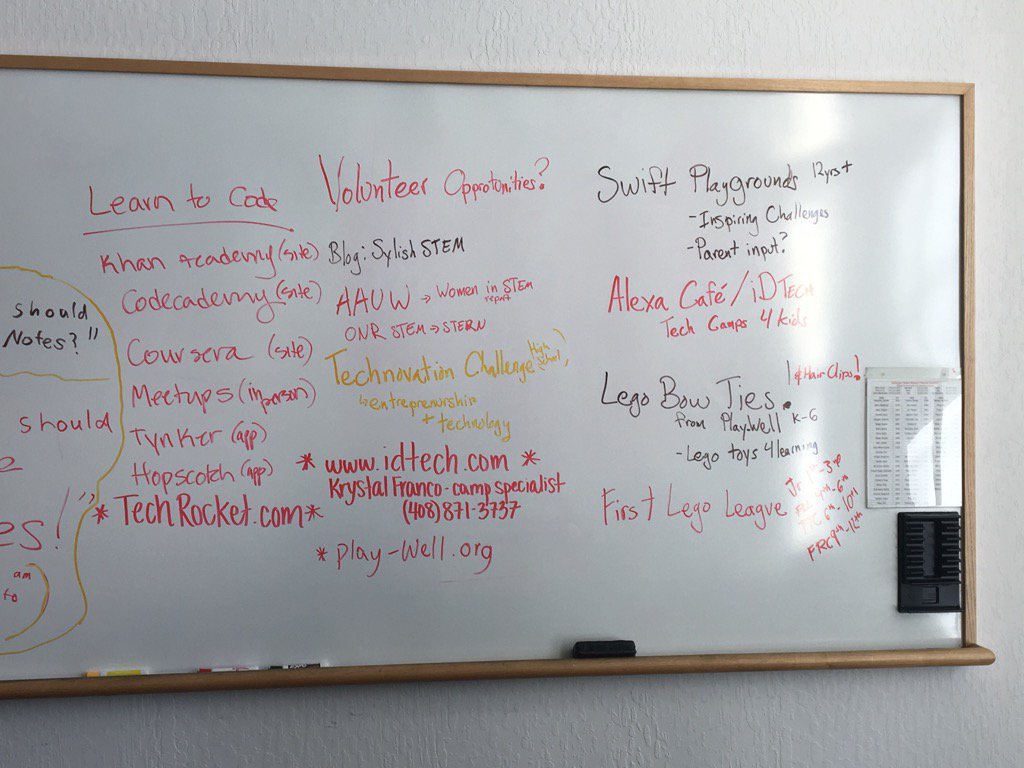 should
Notes?"
should
es!"
am
to
Learn to Code
Khan Academy (site)
Codecademy (site)
Coursera (site)
Meetups (in person)
Tynker (app)
Hopscotch (app)
* TechRocket.com *
Volunteer Opprotunities?
Blog: Sylish STEM
AAUW → Women in STEM
report
ONR STEM → STERN
Technovation Challenge (High School)
↳ entreprenurship
+ technology
* www.idtech.com *
Krystal Franco - camp specialist
(408) 871-3737
* play-well.org
Swift Playgrounds 12yrs+
- Inspiring Challenges
- Parent input?
Alexa Café / iD TECH
Tech Camps 4 kids
& Hair Clips!
Lego Bow Ties
from PlayWell K-6
- Lego toys 4 learning
First Lego League
Jr 1st-3rd
4th-6th
FTC 6th-10th
FRC 9th-12th